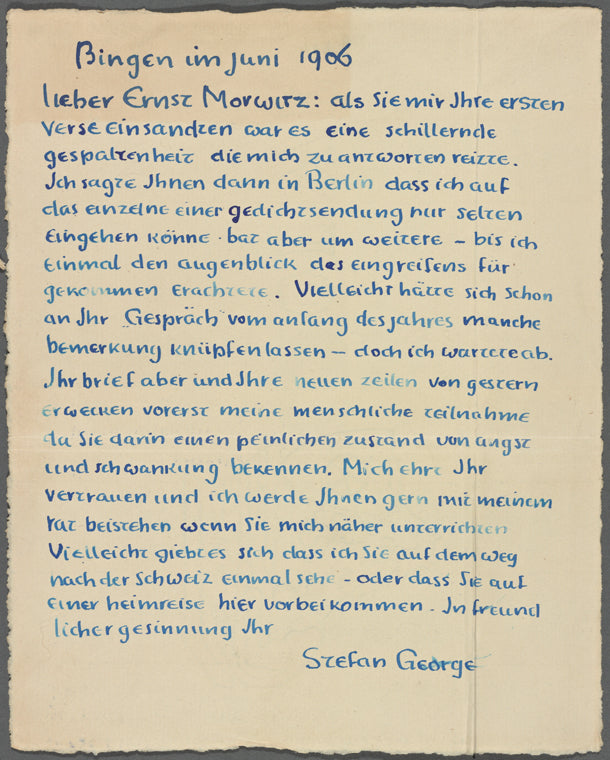 Bingen im juni 1906
lieber Ernst Morwitz: als Sie mir Ihre ersten
verse einsandten war es eine schillernde
gespaltenheit die mich zu antworten reizte.
Ich sagte Ihnen dann in Berlin dass ich auf
das einzelne einer gedichtsendung nur selten
eingehen könne · bat aber um weitere – bis ich
einmal den augenblick des eingreifens für
gekommen erachtete. Vielleicht hätte sich schon
an Ihr Gespräch vom anfang des jahres manche
bemerkung knüpfen lassen – doch ich wartete ab.
Ihr brief aber und Ihre neuen zeilen von gestern
erwecken vorerst meine menschliche teilnahme
da Sie darin einen peinlichen zustand von angst
und schwankung bekennen. Mich ehrt Ihr
vertrauen und ich werde Ihnen gern mit meinem
rat beistehen wenn Sie mich näher unterrichten
Vielleicht giebt es sich dass ich Sie auf dem weg
nach der Schweiz einmal sehe – oder dass Sie auf
einer heimreise hier vorbeikommen. In freund
licher gesinnung Ihr
Stefan George